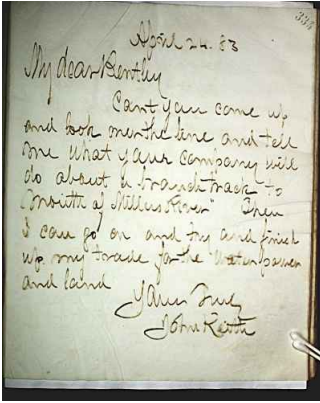 335
April 24. 83
My dear Bentley
Cant you come up
and look over the line and tell
me what your company will
do about a branch track to
"Mouth of Millers River" Then
I can go on and try and finish
up my trade for the "Water power
and land
Yours Truly
John Keith